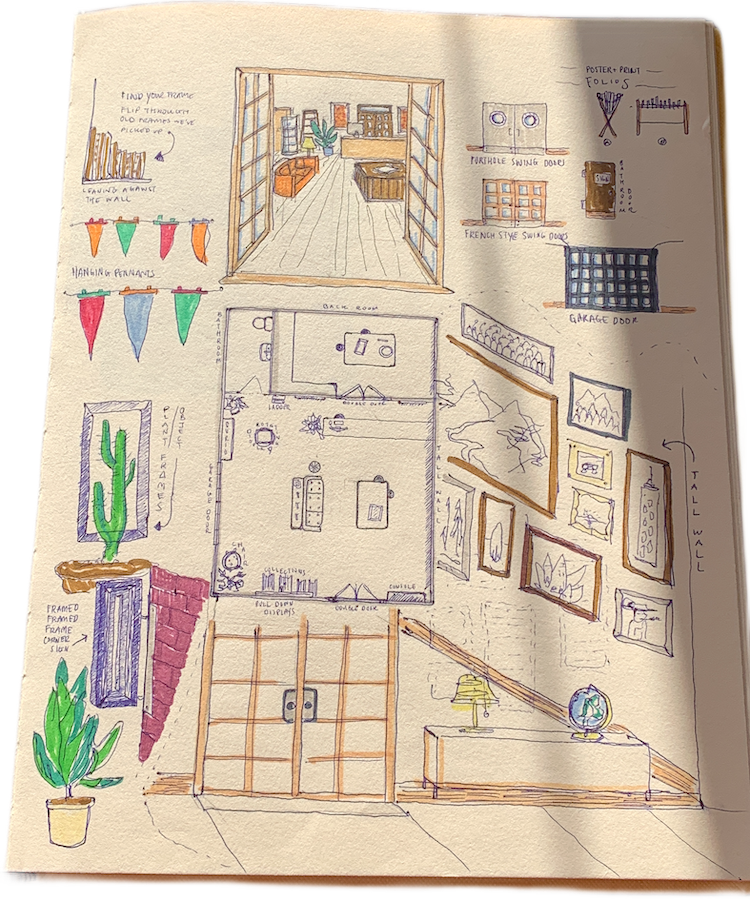 FIND YOUR FRAME
FLIP THROUGH
OLD FRAMES WE'VE
PICKED UP
LEANING AGAINST
THE WALL
HANGING PENNANTS
POSTER + PRINT
FOLIOS
PORTHOLE SWING DOORS
BATHROOM
DOOR
FRENCH STYLE SWING DOORS
GARAGE DOOR
BACK ROOM
BATHROOM
LADDER
DOUBLE DOOR
GARAGE DOOR
TALL WALL
CHAIR
COLLECTIONS
CONSOLE
PULL DOWN
DISPLAYS
DOUBLE DOOR
PLANT FRAMES
TALL WALL
FRAMED
FRAMED
FRAME
CORNER
SIGN